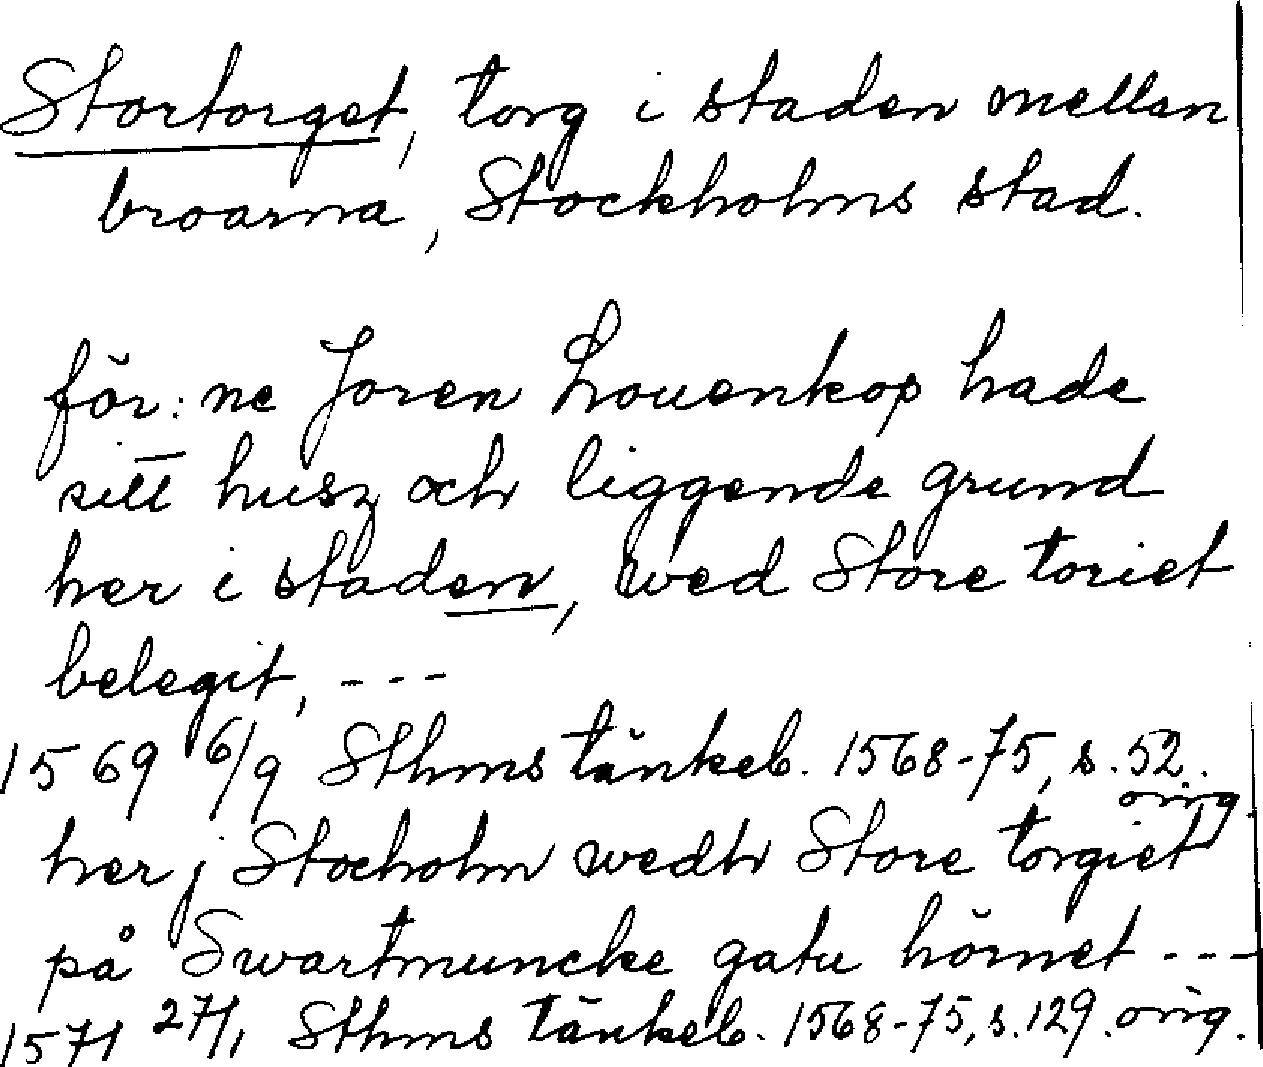 Stortorget, torg i staden mellan
broarna, Stockholms stad.
för: ne Joren Louenkop hade
sitt husz och liggende grund
her i staden, wed Store toriet
belegit, ---
1569 6/9 Sthms tänkeb. 1568-75, s. 52.
orig.
her j Stocholm wedh Store torgiet
på Swartmuncke gatu hörnet ---
1571 27/1 Sthms tänkeb. 1568-75, s. 129. orig.